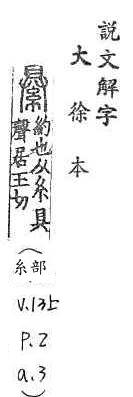 說文解字
大徐本
約也从糸具
聲居玉切
(糸部
V.13上
P.2
a.3)